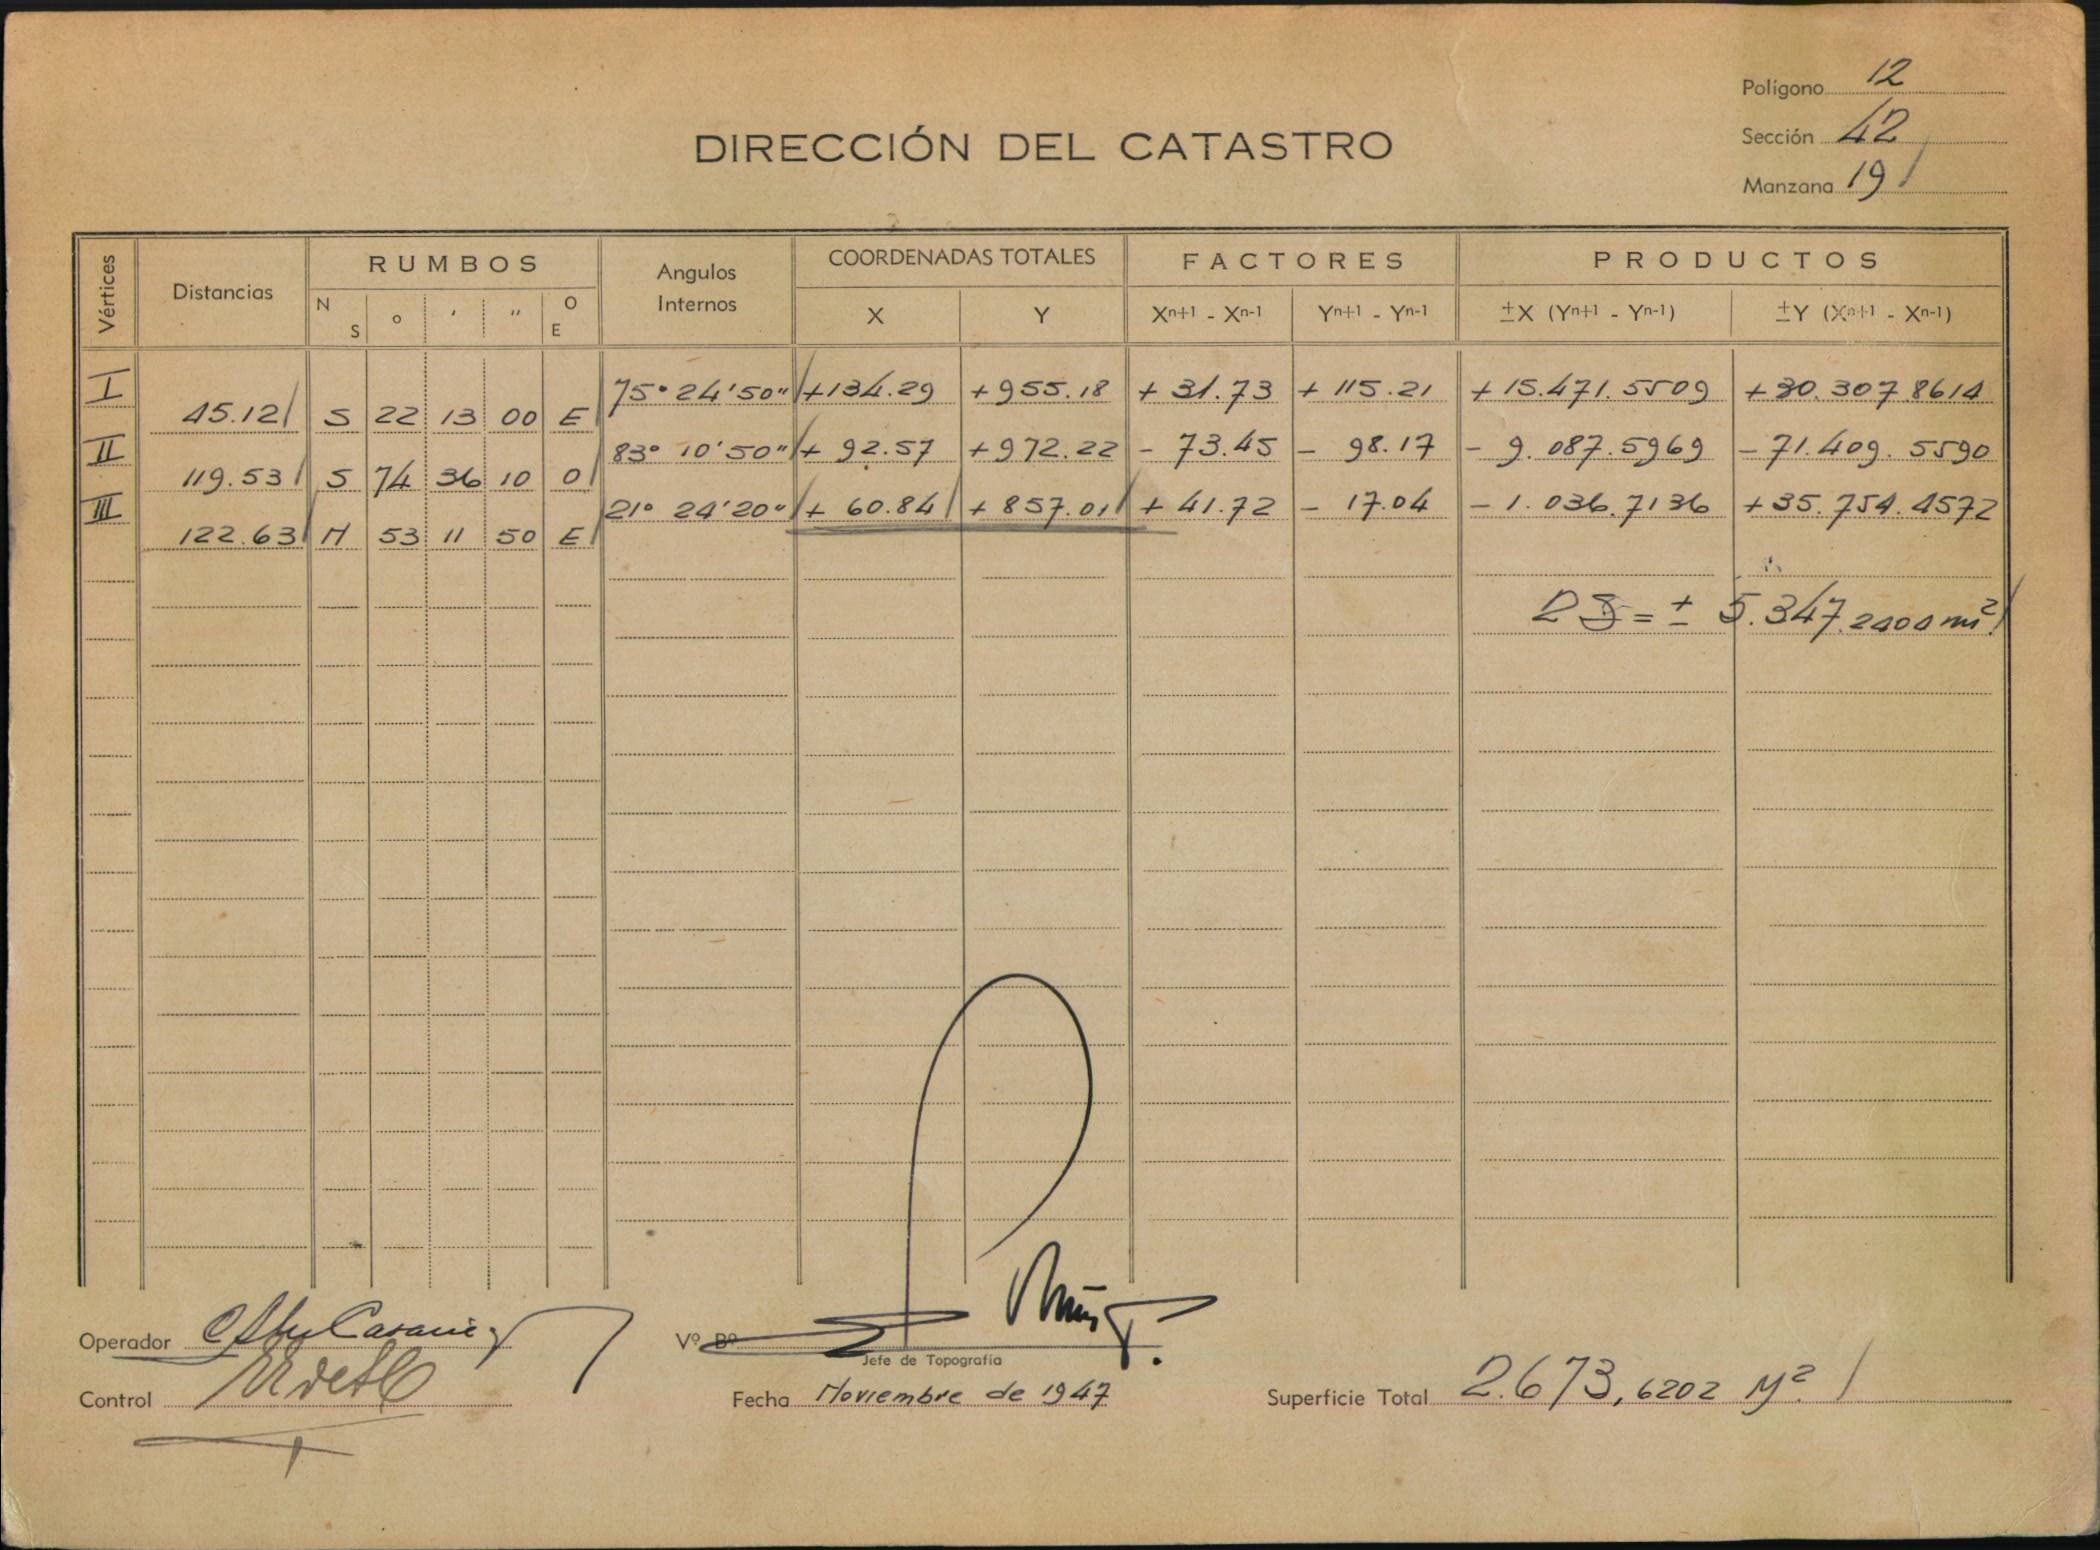 Polígono 12
DIRECCIÓN DEL CATASTRO
Sección 42
Manzana 19
Vértices Distancias RUMBOS Angulos Internos COORDENADAS TOTALES FACTORES PRODUCTOS
N S o ' " O E X Y Xn+1 - Xn-1 Yn+1 - Yn-1 ±X (Yn+1 - Yn-1) ±Y (Xn+1 - Xn-1)
I 75° 24' 50" +134.29 +955.18 + 31.73 + 115.21 + 15.471.5509 +30.307.8614
45.12 S 22 13 00 E
II 83° 10' 50" + 92.57 +972.22 - 73.45 - 98.17 - 9.087.5969 -71.409.5590
119.53 S 74 36 10 O
III 21° 24' 20" + 60.84 +857.01 + 41.72 - 17.04 - 1.036.7136 +35.754.4572
122.63 N 53 11 50 E
2S = ± 5.347.2404 m²
Operador
Vº Bº
Jefe de Topografía
Control
Fecha Noviembre de 1947
Superficie Total 2.673,6202 M²